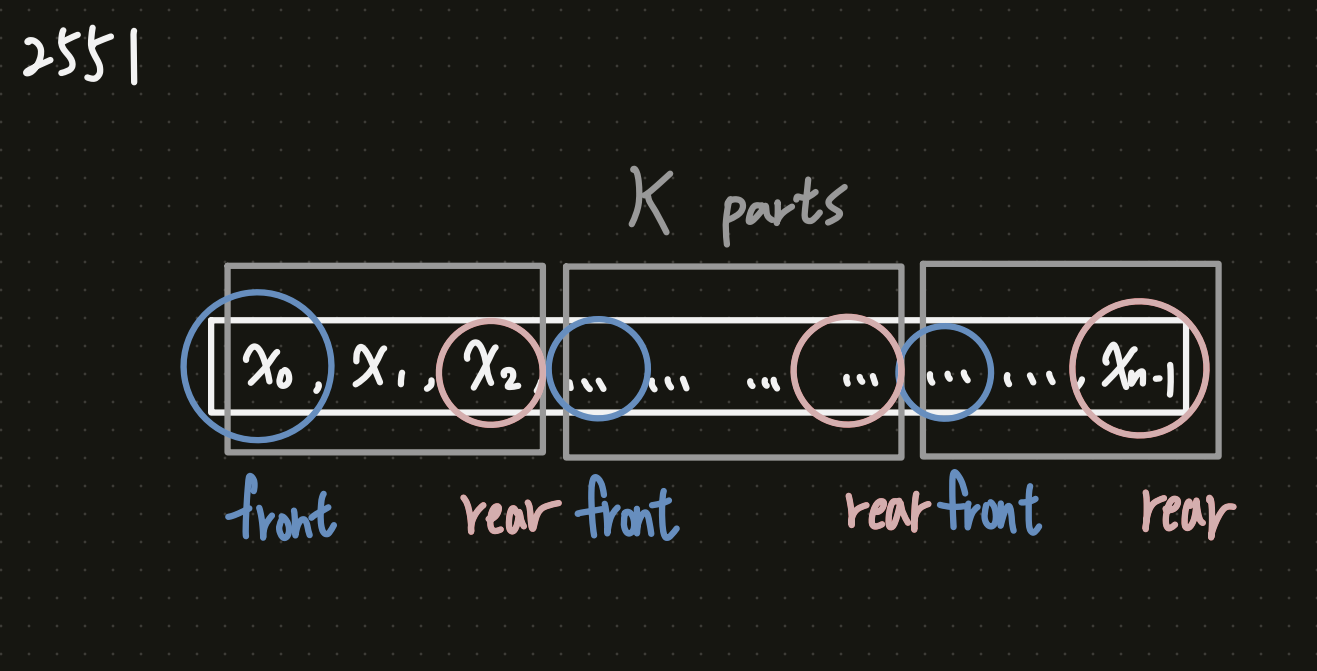 2551
K parts
x₀, x₁, x₂, ... ... ... ... ... ..., xₙ₋₁
front rear front rear front rear